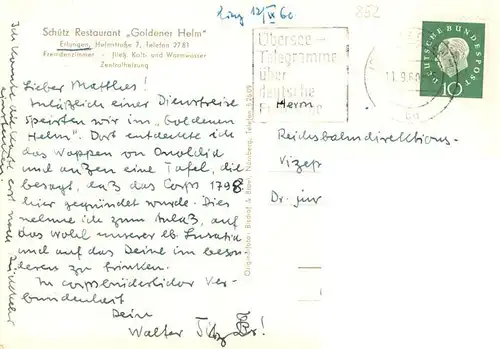 Eing 12/IX 60.
852
Schütz Restaurant „Goldener Helm"
Erlangen, Helmstraße 7, Telefon 2781
Fremdenzimmer - fließ. Kalt- und Warmwasser
Zentralheizung
Lieber Matthes!
Anläßlich einer Dienstreise
speisten wir im "Goldenen
Helm". Dort entdeckte ich
das Wappen von Onoldia
und außen eine Tafel, die
besagt, daß das Corps 1798
hier gegründet wurde. Dies
nehme ich zum Anlaß, auf
das Wohl unserer lb. Lusatia
und auf das Deine im beson
deren zu trinken.
In corpsbrüderlicher Ver-
bundenheit
Dein
Walter
Ich konnte die Karte erst nach Rückkehr
Übersee-
Telegramme
über
deutsche
DEUTSCHE BUNDESPOST
10
Herrn
Reichsbahndirektions-
Vizep
Dr. jur